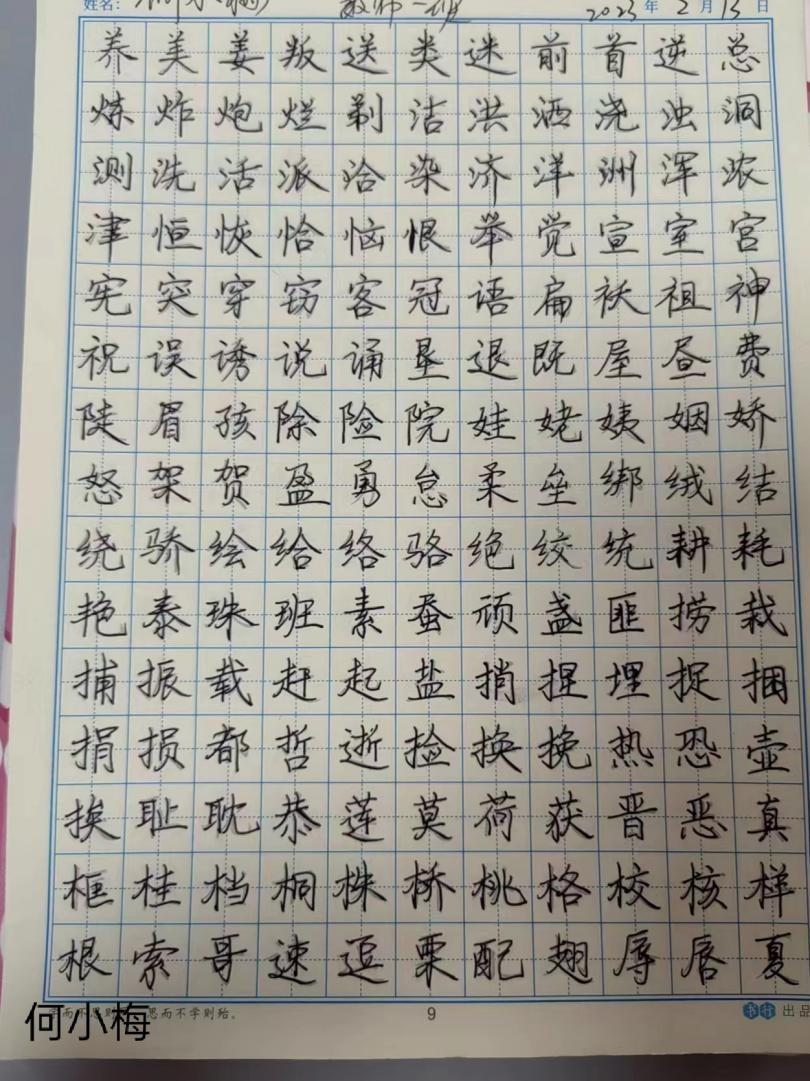 姓名: 教师一班 2023 年 2 月 13 日
养美姜叛送类迷前首逆总
炼炸炮烂剃洁洪洒浇浊洞
测洗活派洽染济洋洲浑浓
津恒恢恰恼恨举觉宣室宫
宪突穿窃客冠语扁袄祖神
祝误诱说诵垦退既屋昼费
陡眉孩除险院娃姥姨姻娇
怒架贺盈勇怠柔垒绑绒结
绕骄绘给络骆绝绞统耕耗
艳泰珠班素蚕顽盏匪捞栽
捕振载赶起盐捎捏埋捉捆
捐损都哲逝捡换挽热恐壶
挨耻耽恭莲莫荷获晋恶真
框桂档桐株桥桃格校核样
根索哥速逗栗配翅辱唇夏
思而不学则殆。 9 书行 出品
何小梅